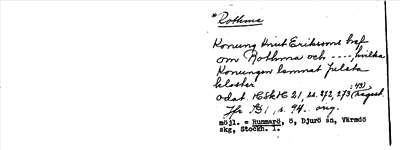 *Rothma
Konung Knut Erikssons bref
om Rothma och ----, hvilka
Konungen lemnat Julita
kloster
odat. HSkH 21, ss. 272, 273;
Jfr s. 94. orig.
möjl. = Runmarö, ö, Djurö sn, Värmdö
skg, Stockh. l.